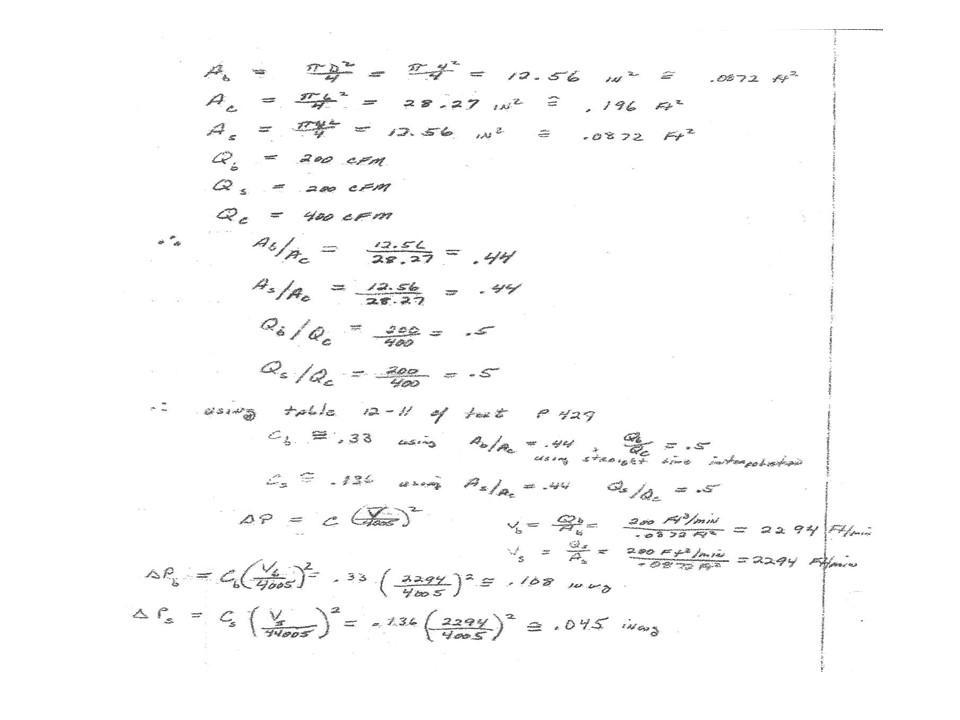 A_b = πD²/4 = π4²/4 = 12.56 IN² ≅ .0872 Ft²
A_c = π6²/4 = 28.27 IN² ≅ .196 Ft²
A_s = π4²/4 = 12.56 IN² ≅ .0872 Ft²
Q_b = 200 CFM
Q_s = 200 CFM
Q_c = 400 CFM
∴ A_b/A_c = 12.56/28.27 = .44
A_s/A_c = 12.56/28.27 = .44
Q_b/Q_c = 200/400 = .5
Q_s/Q_c = 200/400 = .5
∴ using table 12-11 of text P 429
C_b ≅ .33 using A_b/A_c = .44, Q_b/Q_c = .5
using straight line interpolation
C_s ≅ .136 using A_s/A_c = .44 Q_s/Q_c = .5
ΔP = C (V/4005)² V_b = Q_b/A_b = 200 Ft³/min/.0872 Ft² = 2294 Ft/min
V_s = Q_s/A_s = 200 Ft³/min/.0872 Ft² = 2294 Ft/min
ΔP_b = C_b (V_b/4005)² = .33 (2294/4005)² ≅ .108 in wg
ΔP_s = C_s (V_s/44005)² = .136 (2294/4005)² ≅ .045 in wg